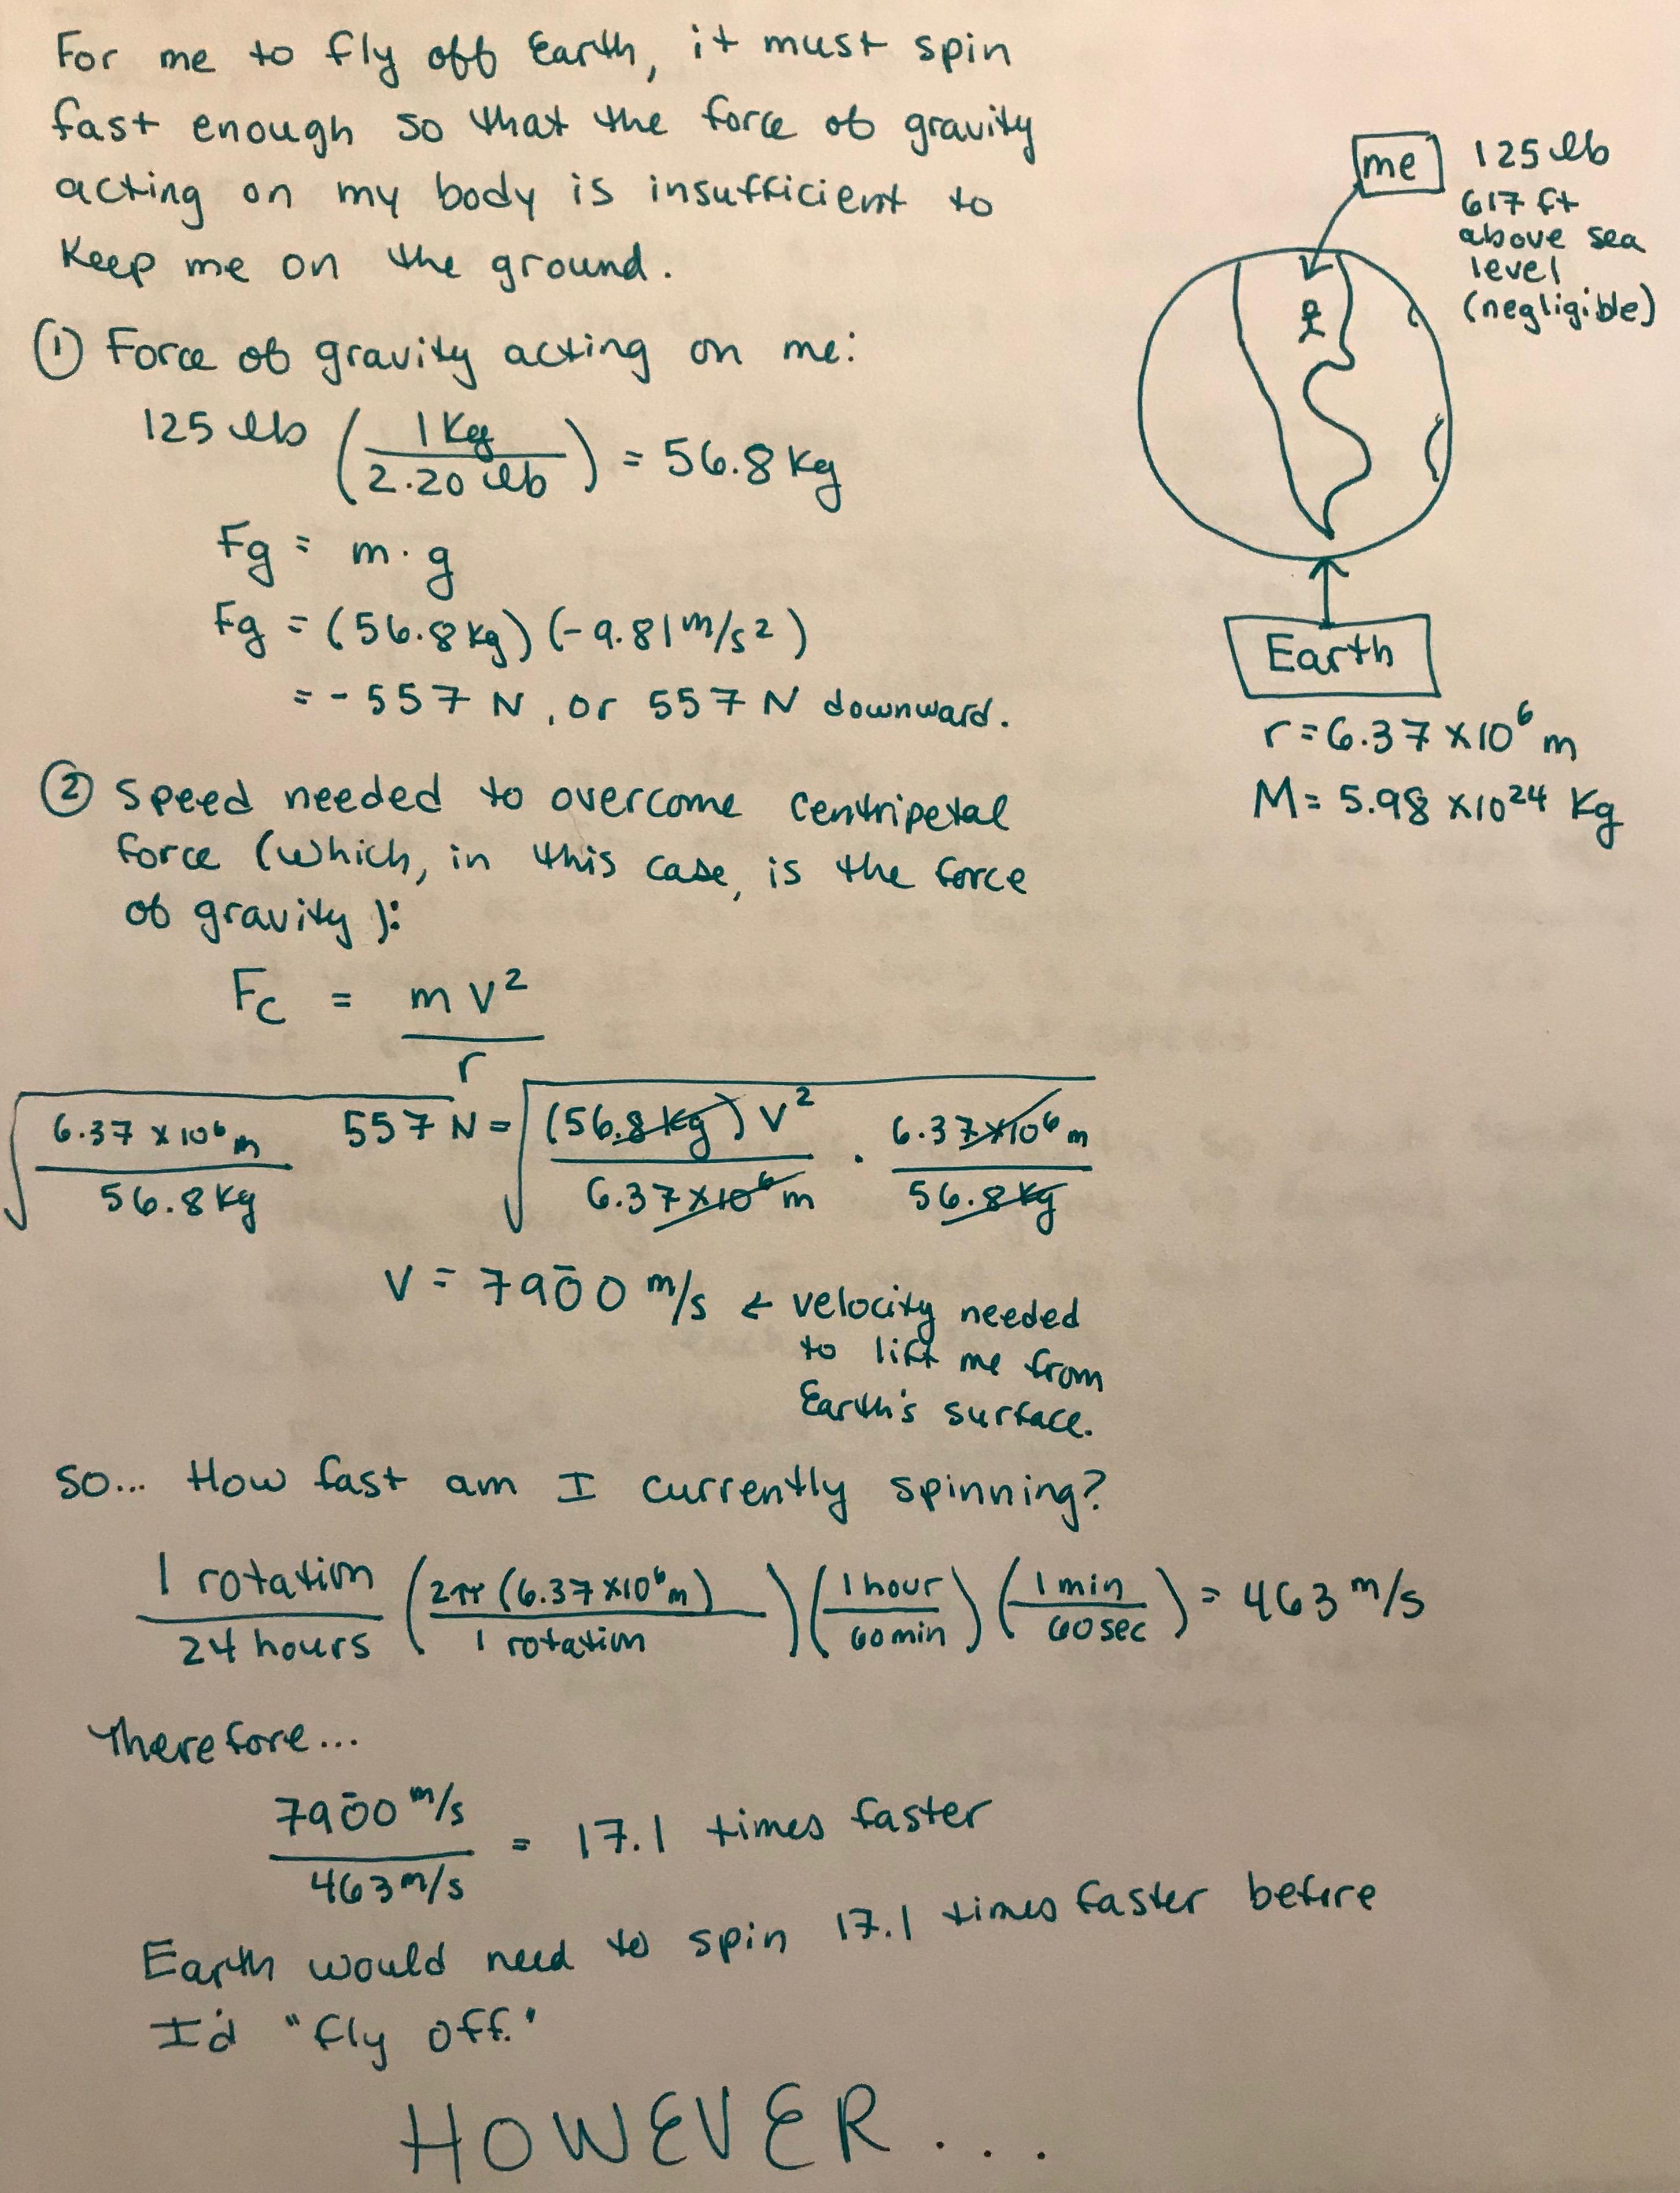 For me to fly off Earth, it must spin
fast enough so that the force of gravity
acting on my body is insufficient to
keep me on the ground.
me
125 lb
617 ft
above sea
level
(negligible)
① Force of gravity acting on me:
125 lb (1 kg / 2.20 lb) = 56.8 kg
Fg = m · g
Fg = (56.8 kg) (-9.81 m/s²)
= -557 N, or 557 N downward.
Earth
r = 6.37 x10⁶ m
M = 5.98 x10²⁴ kg
② Speed needed to overcome centripetal
force (which, in this case, is the force
of gravity):
Fc = mv² / r
√ 6.37 x 10⁶ m / 56.8 kg 557 N = √ (56.8 kg) v² / 6.37 x10⁶ m · 6.37 x10⁶ m / 56.8 kg
v = 790̄0 m/s ← velocity needed
to lift me from
Earth's surface.
So... How fast am I currently spinning?
1 rotation / 24 hours (2π (6.37 x10⁶ m) / 1 rotation) (1 hour / 60 min) (1 min / 60 sec) = 463 m/s
Therefore...
790̄0 m/s / 463 m/s = 17.1 times faster
Earth would need to spin 17.1 times faster before
I'd "fly off."
HOWEVER...